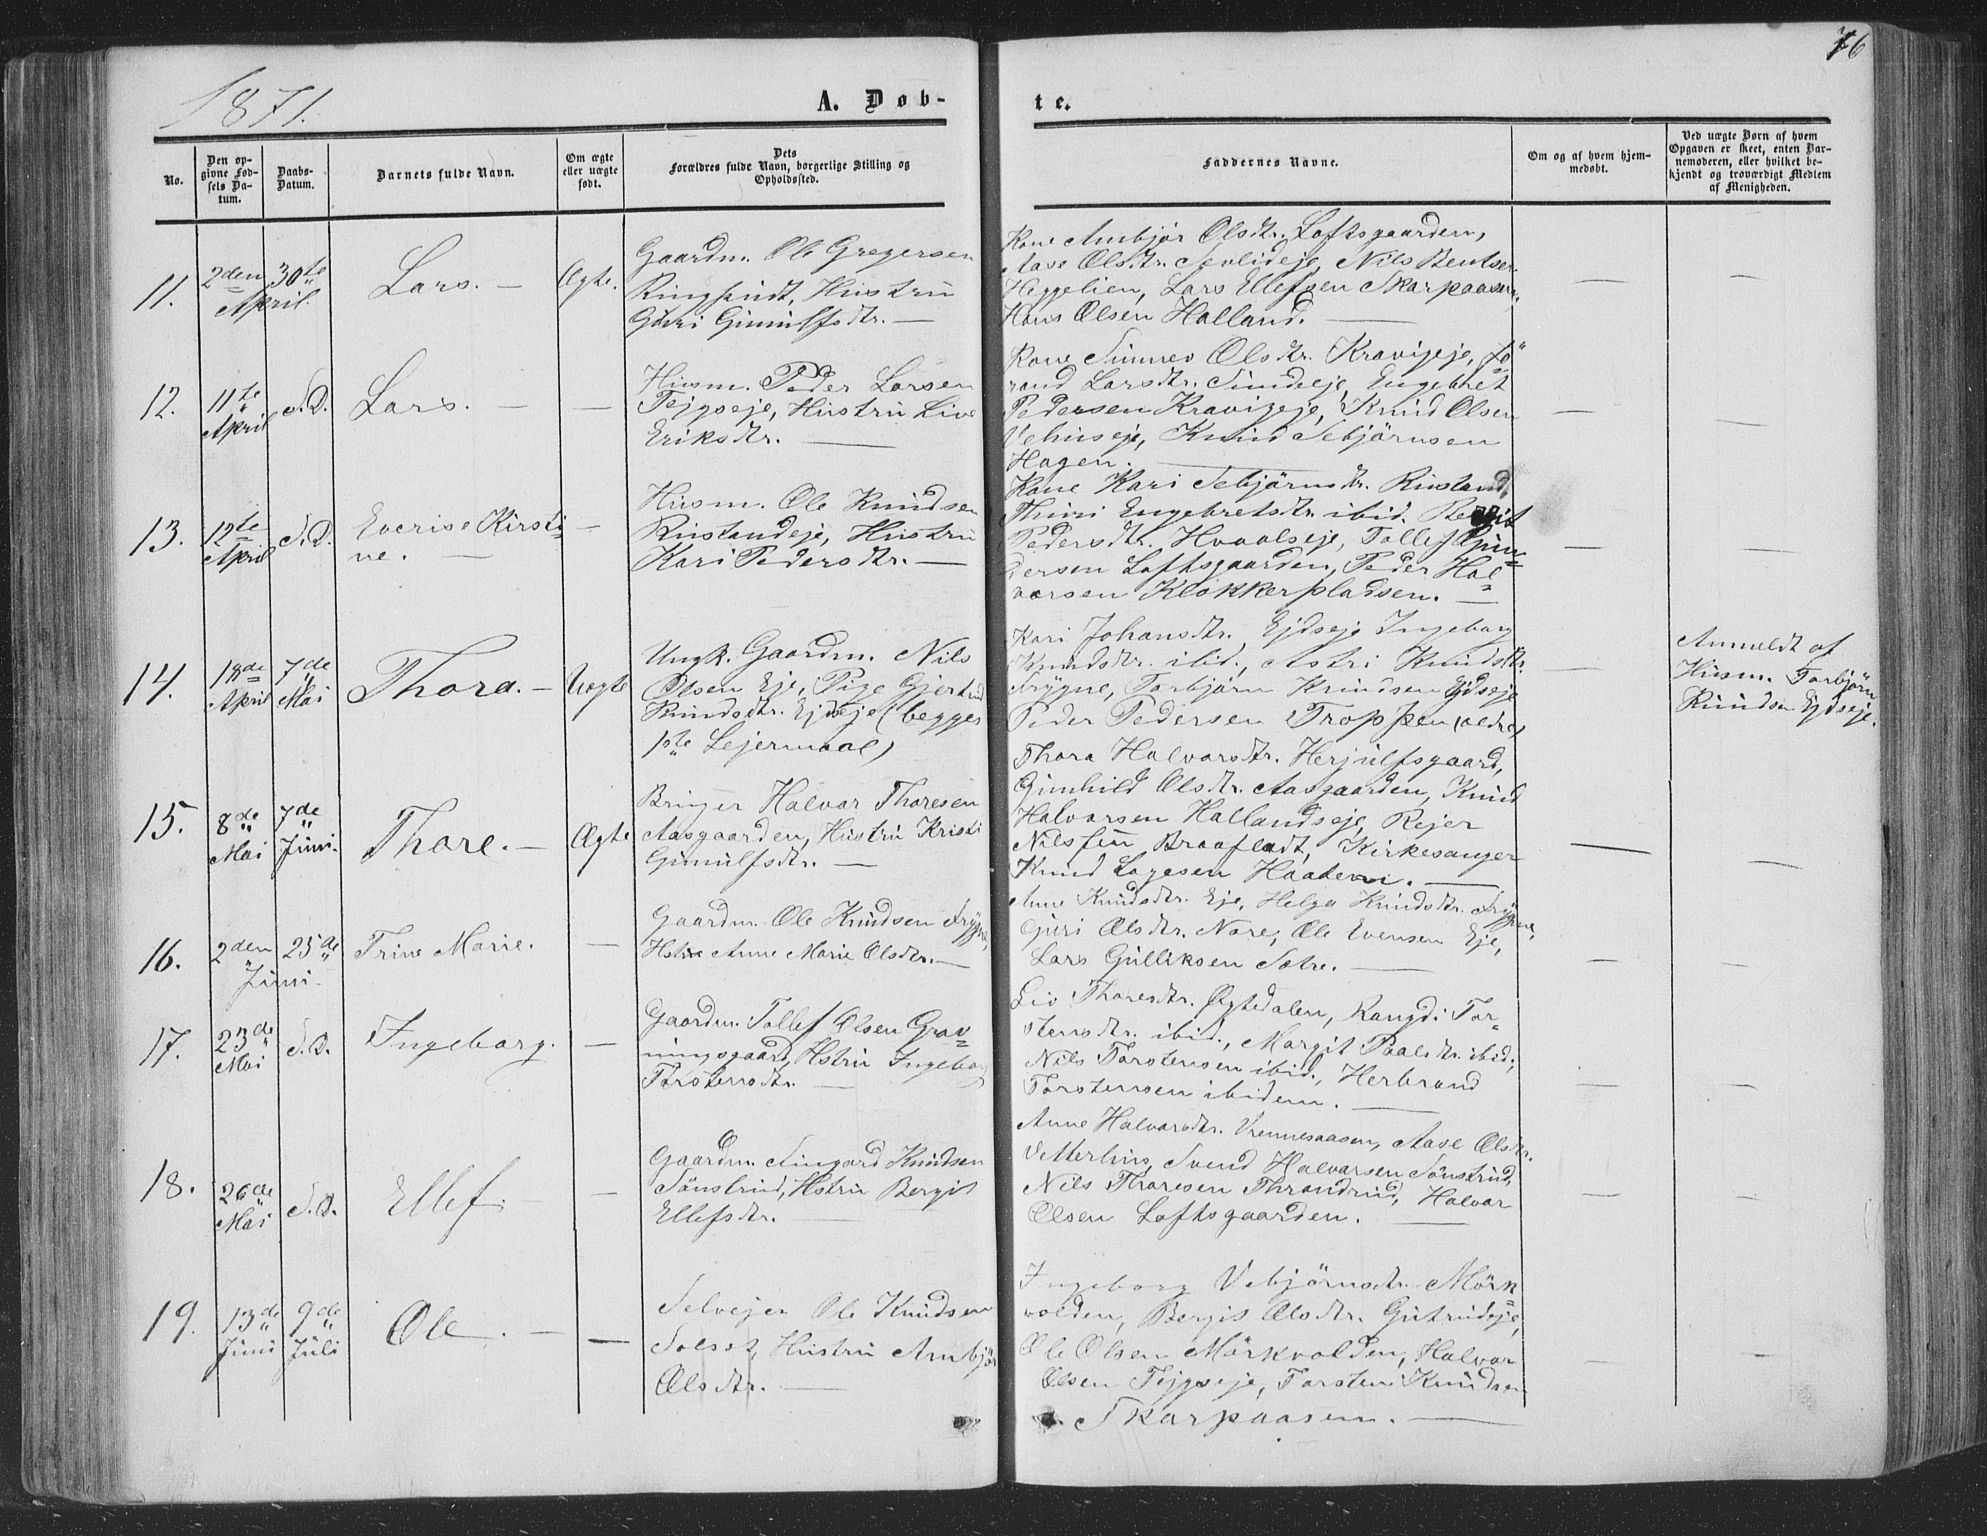 1871.
A. Døb-
te.
76
No.
Den op-
givne Fød-
sels Da-
tum.
Daabs-
Datum.
Barnets fulde Navn.
Om ægte
eller uægte
født.
Dets
Forældres fulde Navn, borgerlige Stilling og
Opholdssted.
Faddernes Navne.
Om og af hvem hjem-
medøbt.
Ved uægte Børn af hvem
Opgaven er skeet, enten Bar-
nemoderen, eller hvilket be-
kjendt og troværdigt Medlem
af Menigheden.
11.
2den
April
30te
Lars. —
Ægte.
Gaardm. Ole Gregersen
Ringsrudt, Hustru
Guri Gunulfsdtr. —
Kone Anbjør Olsdtr. Loftsgaarden,
Aase Olsdtr. Nils Bentsen
Heggelien, Lars Ellefsen Skarpaasen,
Hans Olsen Halland. —
—
—
12.
11te
April
S.D.
Lars. —
—
Husm. Peder Larsen
Tejgseje, Hustru Live
Eriksdtr. —
Kone Sunnev Olsdtr. Kravigeje, Jø-
rand Larsdtr. Sundeeje, Engebret
Pedersen Kravigeje, Knud Olsen
Vehuseje, Knud Sebjørnsen
Hagen. —
—
—
13.
12te
April
S.D.
Everise Kirsti-
ne. —
—
Husm. Ole Knudsen
Rustandeje, Hustru
Kari Pedersdtr. —
Kone Kari Sebjørnsdtr. Rustand,
Thuri Engebretsdtr. ibid. Bergit
Pedersdtr. Hvaalseje, Tollef Gun-
dersen Loftsgaarden, Peder Hal-
varsen Klokkerpladsen. —
—
—
14.
18de
April
7de
Mai
Thora. —
Uægte
Ungk. Gaardm. Nils
Olsen Eje, Pige Gjertrud
Knudsdtr. Ejdseje (begges
1ste Lejermaal)
Kari Johansdtr. Ejdseje Ingeborg
Knudsdtr. ibid., Astri Knudsdtr.
Frygne, Torbjørn Knudsen Ejdseje
Peder Pedersen Troppen (ældre)
—
Anmeldt af
Husm. Torbjørn
Knudsen Ejdseje.
15.
8de
Mai
7de
Juni.
Thore. —
Ægte
Bruger Halvar Thoresen
Aasgaarden, Hustru Kristi
Gunulfsdtr. —
Thora Halvarsdtr. Herjulfsgaard,
Gunhild Olsdtr. Aasgaarden, Knud
Halvarsen Hallandseje, Rejer
Nilssøn Braafladt, Kirkesanger
Knud Lagesen Haaten. —
—
—
16.
2den
Juni.
25de
Trine Marie.
—
Gaardm. Ole Knudsen Frygne,
Hstru Anne Marie Olsdtr. —
Anne Knudsdtr. Eje, Helga Knudsdtr. Frygne,
Guri Olsdtr. Nore, Ole Evensen Eje,
Lars Gulliksen Satre. —
—
—
17.
23de
Mai
S.D.
Ingeborg.
—
Gaardm. Tollef Olsen Grav-
ningsgaard, Hstru Ingeborg
Torstensdtr. —
Liv Thoresdtr. Øgtedalen, Rangdi Tor-
stensdtr. ibid., Margit Paalsdtr. ibid,
Nils Torstensen ibid., Herbrand
Torstensen ibidem. —
—
—
18.
26de
Mai
S.D.
Ellef. —
—
Gaardm. Singard Knudsen
Sønstrud, Hstru Bergit
Ellefsdtr. —
Anne Halvarsdtr. Vrennesaasen, Aase Olsdtr.
Vetterhus, Svend Halvarsen Sønstrud,
Nils Thoresen Thrandrud, Halvar
Olsen Loftsgaarden. —
—
—
19.
13de
Juni
9de
Juli
Ole. —
—
Selvejer Ole Knudsen
Solset, Hustru Anbjør
Olsdtr. —
Ingeborg Vebjørnsdtr. Mørk-
volden, Bergit Olsdtr. Gutrudeje,
Ole Olsen Mørkvolden, Halvar
Olsen Tejgseje, Torsten Knudsen
Skarpaasen. —
—
—